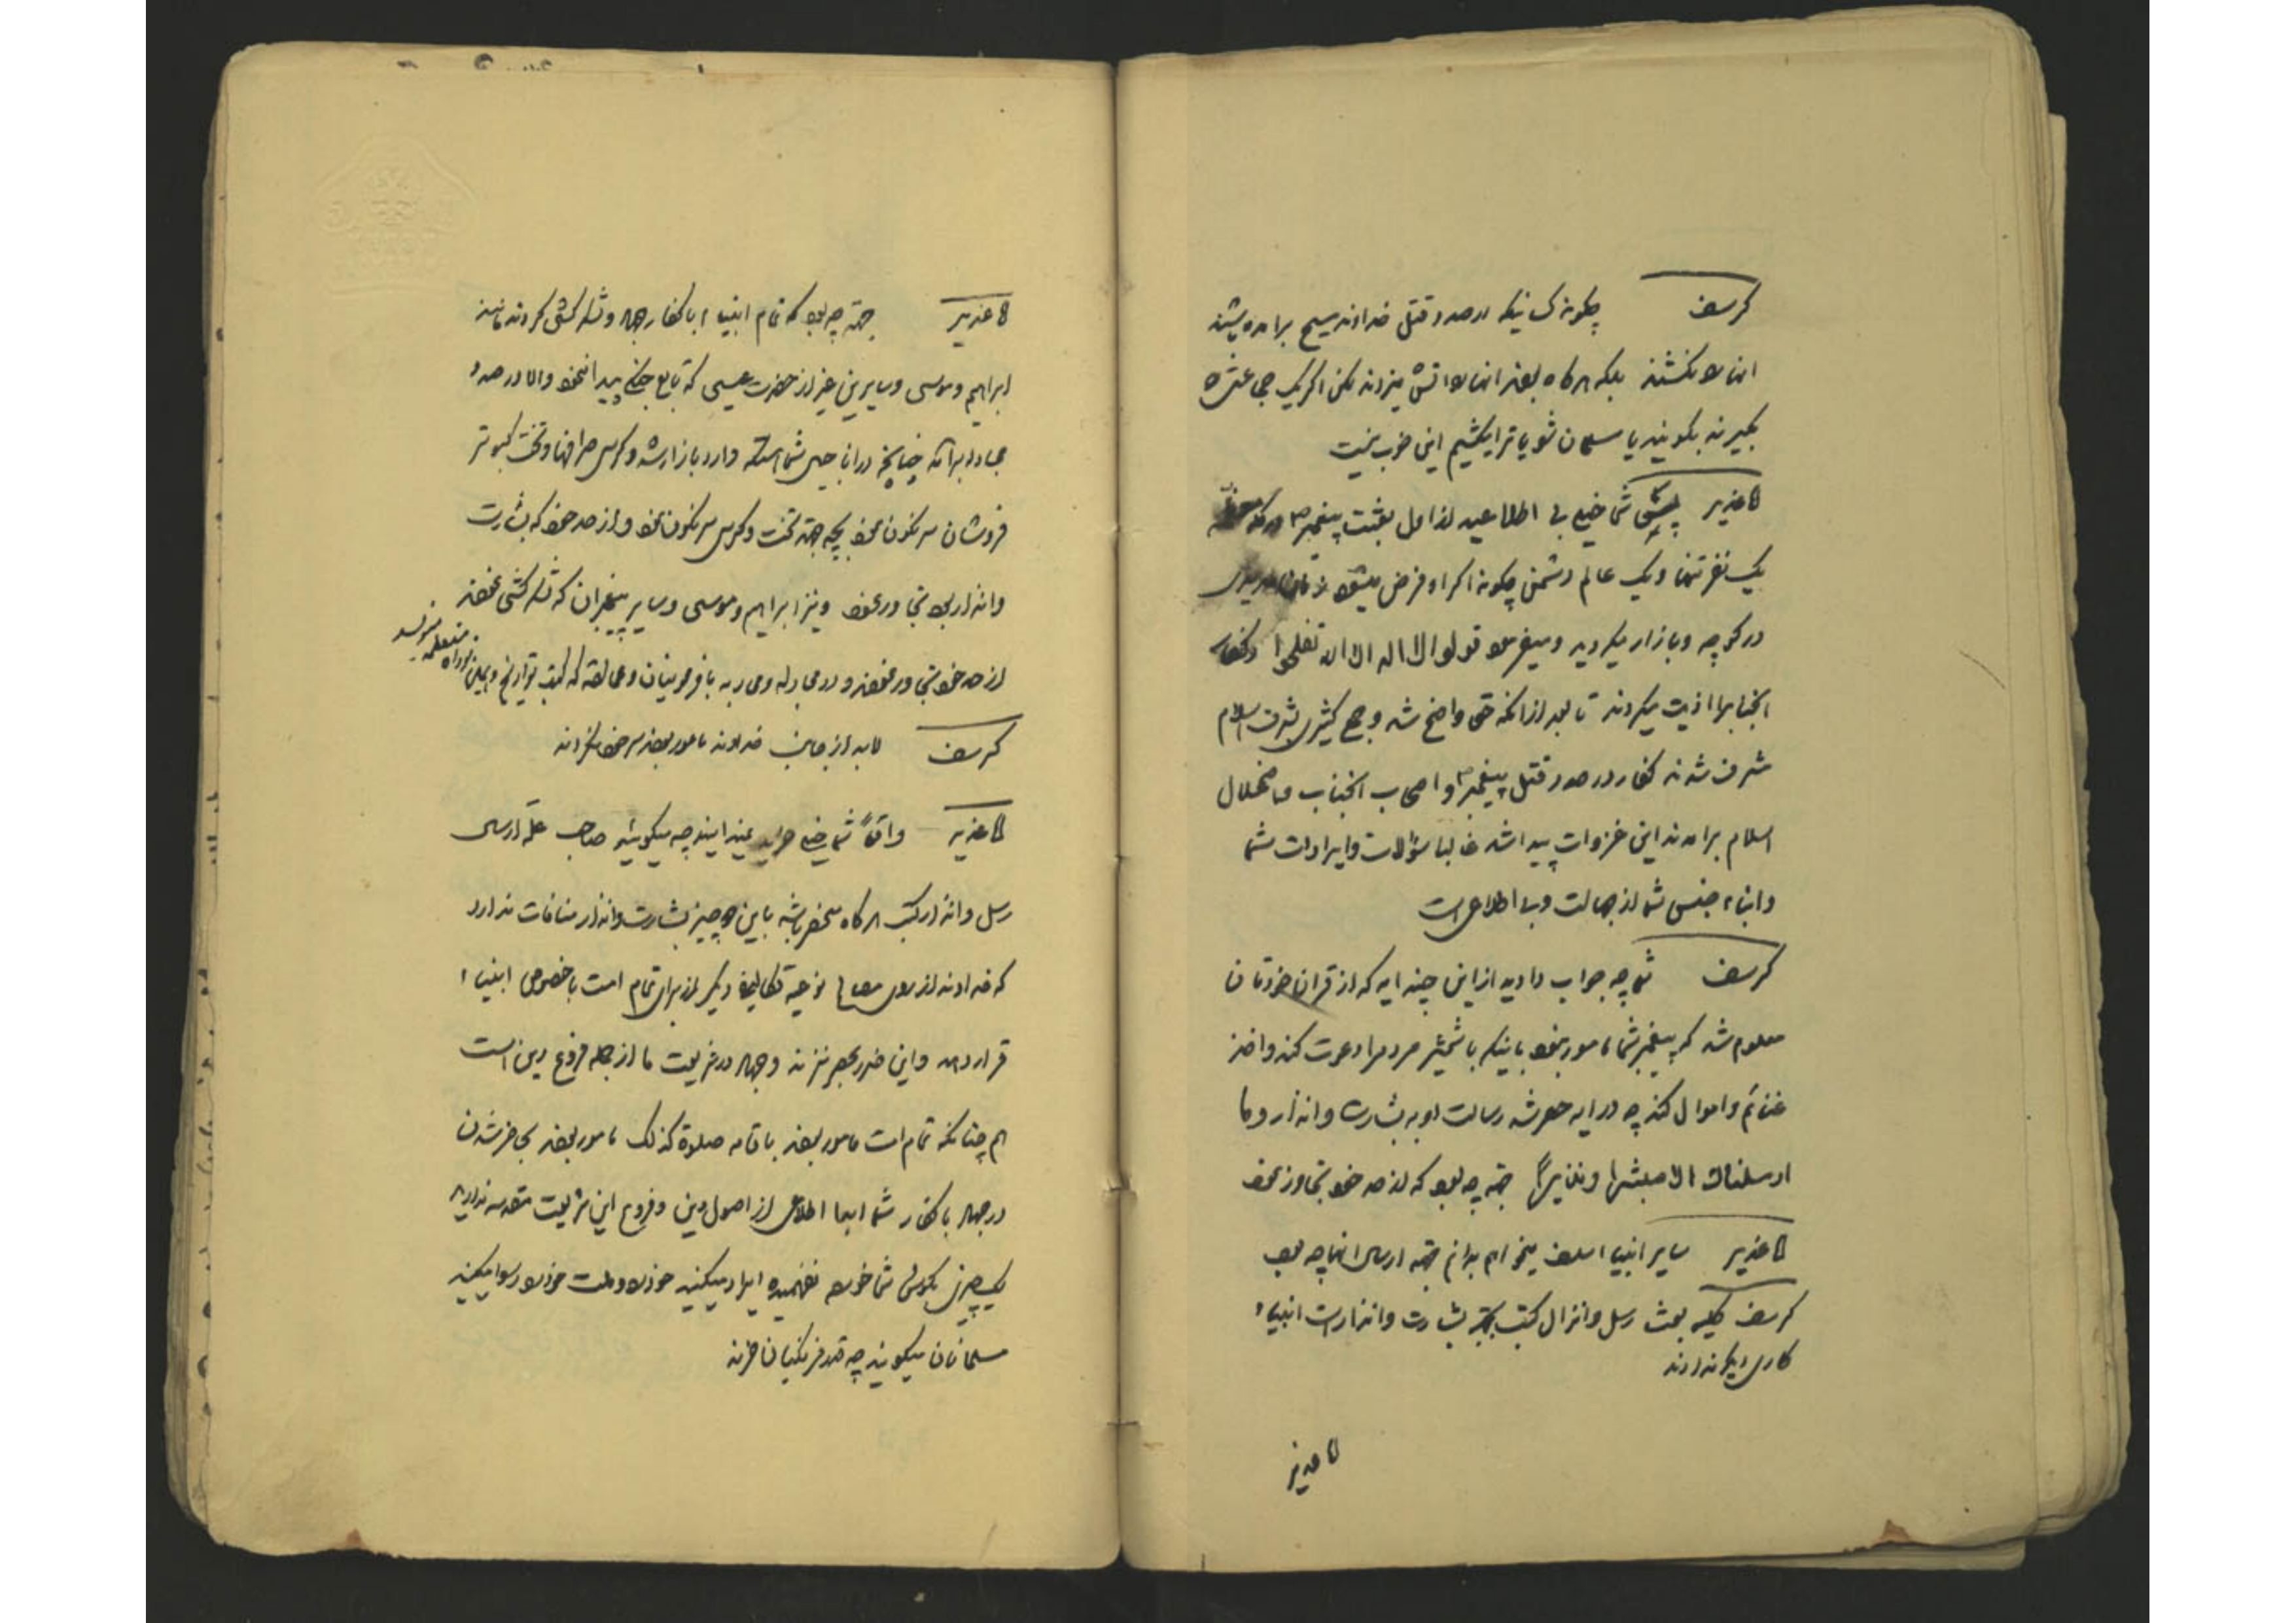 کرسف چگونه کسانیکه در صدد قتل خداوند مسیح برامده بیشتند
انها را نکشتند بلکه هرگاه بودند انها را اتش میزدند لکن اگر یک جی
بگیرند بگویند یا مسلمان شو یا ترا بکشیم این خوب نیست
کاغذیر شما خیلی بی اطلاعید از اول بعثت پیغمبر ص در مکه
یک نفر تنها و یک عالم دشمن چگونه اکراه فرض میشود
در کوچه و بازار میکردید و میفرمود قولوا لا اله الا الله تفلحوا و کفار
انجناب را اذیت میکردند تا بعد از انکه حق واضح شد و جمع کثیری بشرف اسلام
مشرف شدند کفار در صدد قتل پیغمبر ص و اصحاب انجناب و اضمحلال
اسلام برامدند این غزوات پیدا شد غالبا سؤالات و ایرادات شما
و ابناء جنس شما از جهالت و بی اطلاعی است
کرسف شما چه جواب دادید از این چند ایه که از قران خودتان
معلوم شد که پیغمبر شما مامور نبود باینکه با شمشیر مردم را دعوت کند و اخذ
غنائم و اموال کند چه در ایه حصر شد رسالت او به بشارت و انذار و ما
ارسلناک الا مبشرا و نذیرا جهة چه بود که از حد خود تجاوز نمود
کاغذیر سایر انبیاء سلف میخواهم بدانم جهة ارسال انها چه بود
کرسف کلیه بعث رسل و انزال کتب بجهة بشارت و انذار است انبیاء
کاری دیگر ندارند
کاغذیر
کاغذیر جهة چه بود که تمام انبیاء با کفار جهاد و لشکر کشی کردند مانند
ابراهیم و موسی و سایرین غیر از حضرت عیسی که تابع جنگی پیدا ننمود و الا در صدد
مجادله برامد چنانچه در اناجیل شما است که وارد بازار شد و کرسی صرافها و تخت کبوتر
فروشان سرنگون نمود بچه جهة تخت و کرسی سرنگون نمود و از حد خود که بشارت
و انذار بود تجاوز نمود و نیز ابراهیم و موسی و سایر پیغمبران که لشکر کشی نمودند
از حد خود تجاوز نمودند و در مجادله و محاربه با فرعونیان و عمالقه که کتب تواریخ
کرسف لابد از جانب خداوند مامور بودند سر خود نکردند
کاغذیر واقعاً شما خیلی خرید نمیدانید چه میگوئید صاحب علة ارسال
رسل و انزال کتب هرگاه منحصر باشد باین دو چیز بشارت و انذار منافات ندارد
که خداوند از روی مصالح نوعیه تکالیف دیگر از برای تمام امت یا خصوص انبیاء
قرار دهد و این ضرر بحصر نزند و جهاد در شریعت ما از جمله فروع دین است
هم چنانکه تمام امت مامور بودند باقامه صلوة کذلک مامور بودند بحاضر شدن
در جهاد با کفار شما ابدا اطلاعی از اصول دین و فروع این شریعت مقدسه ندارید
یک چیزی بگوش شما خورده نفهمیده ایراد میکنید خود را و ملت خود را رسوا میکنید
مسلمانان میگویند چه قدر فرنگیان خرند